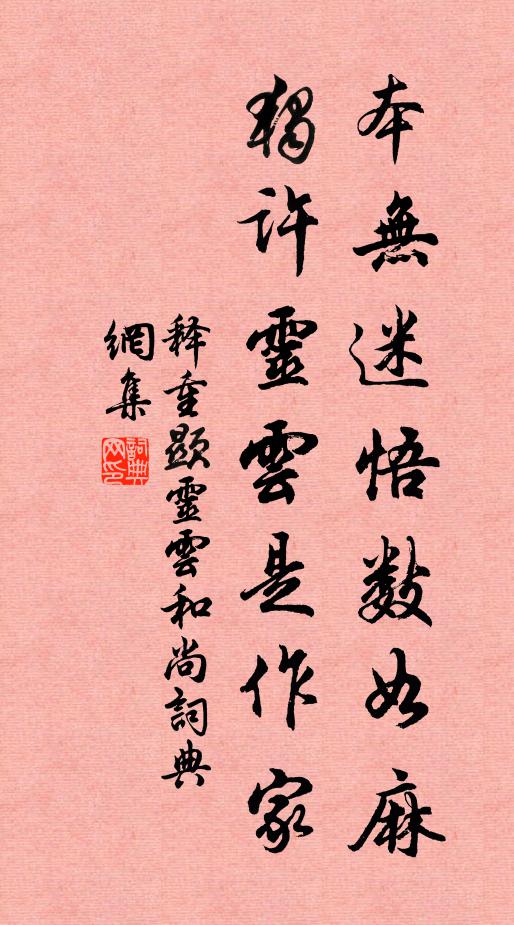 本無迷悟數如麻
獨許靈雲是作家
释重顯靈雲和尚詞典
網集
詞典
网印